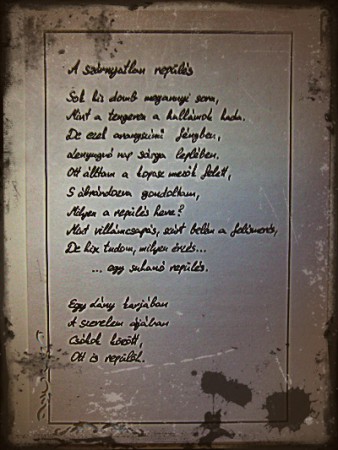 A szárnyatlan repülés
Sok kis domb megannyi sora,
Mint a tengeren a hullámok hada.
De ezek aranyszínű fényben,
Lenyugvó nap sárga leplében.
Ott álltam a kopasz mezők felett,
S ábrándozva gondoltam,
Milyen a repülés heve?
Mint villámcsapás, szárt belém a felismerés,
De hisz tudom, milyen érzés...
... egy suhanó repülés.
Egy lány karjában
A szerelem
Csókok között,
Ott is repülök.